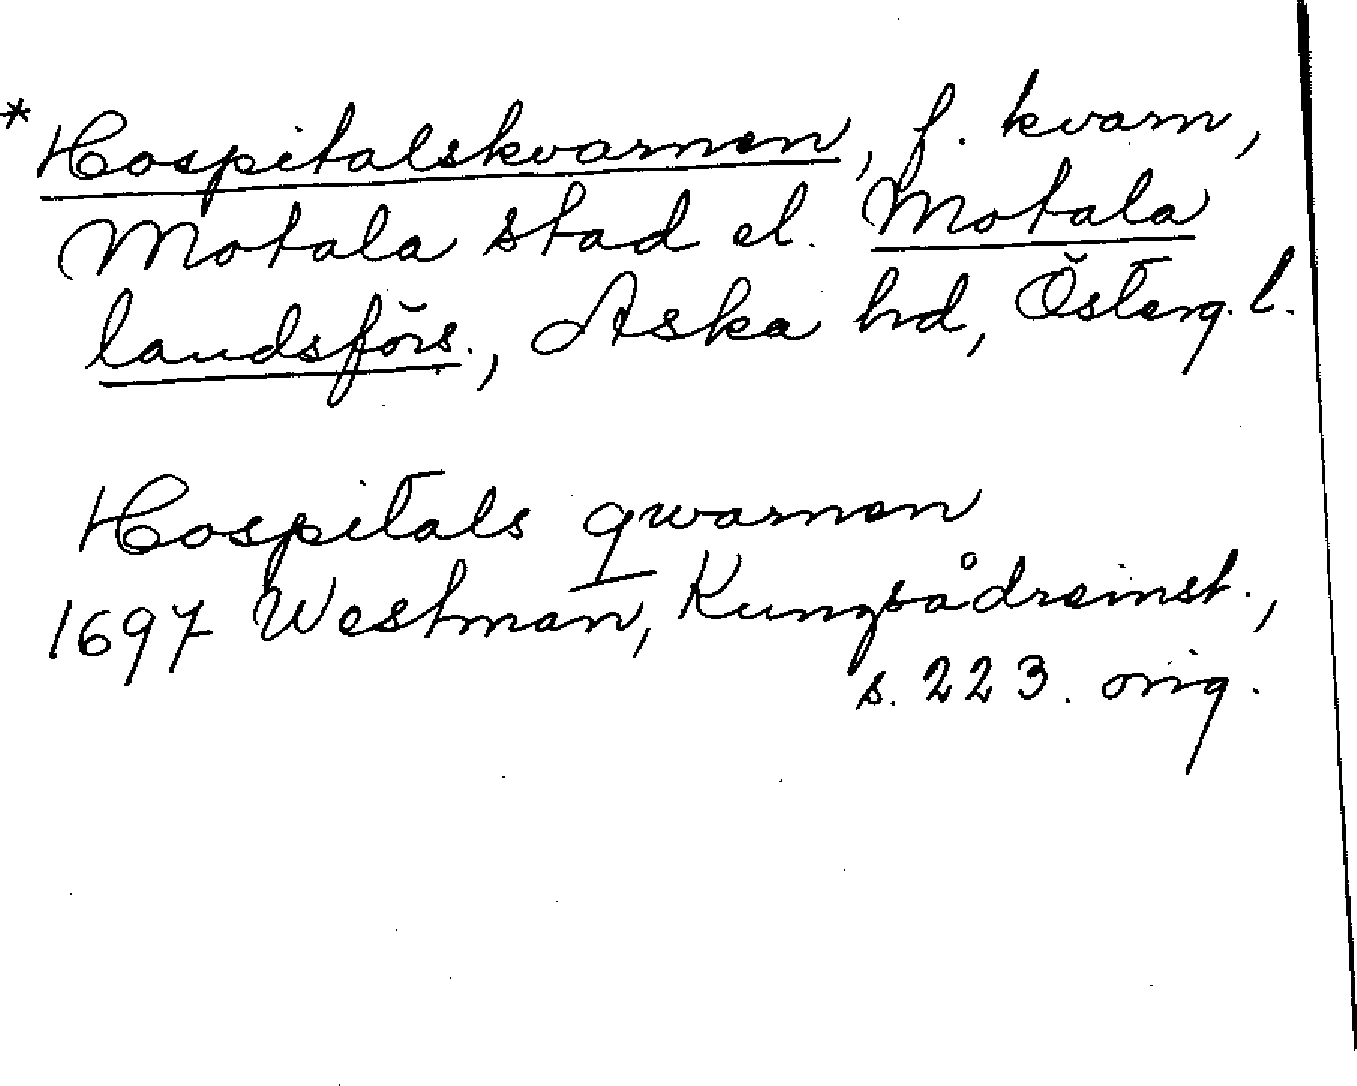 *Hospitalskvarnen, f. kvarn,
Motala stad el. Motala
landsförs., Aska hd, Österg. l.
Hospitals qwarnen
1697 Westman, Kungsådreinst.,
s. 223. orig.